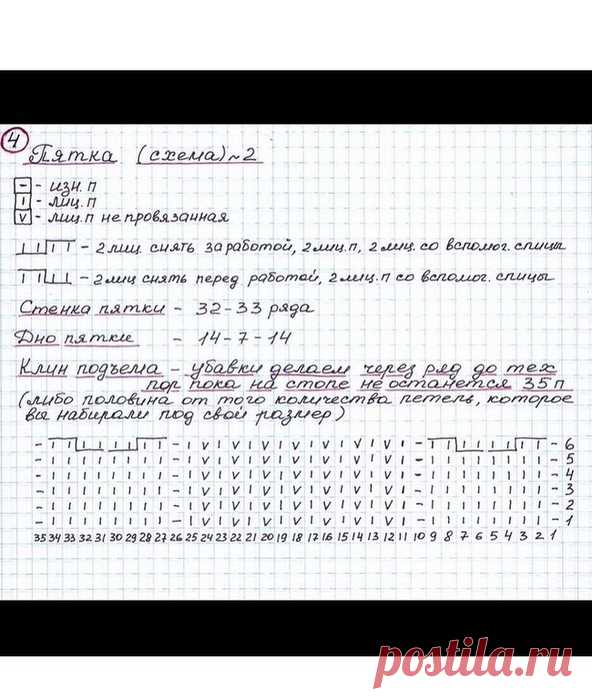 4
Пятка (схема) ~ 2
- - изн. п
ı - лиц. п
v - лиц. п не провязанная
- 2 лиц. снять за работой, 2 лиц. п, 2 лиц. со вспомог. спицы
- 2 лиц снять перед работой, 2 лиц. п со вспомог. спицы
Стенка пятки - 32-33 ряда
Дно пятки - 14-7-14
Клин подъема - убавки делаем через ряд до тех
пор пока на стопе не останется 35 п
(либо половина от того количества петель, которое
вы набирали под свой размер)
6
5
4
3
2
1
35 34 33 32 31 30 29 28 27 26 25 24 23 22 21 20 19 18 17 16 15 14 13 12 11 10 9 8 7 6 5 4 3 2 1
postila.ru